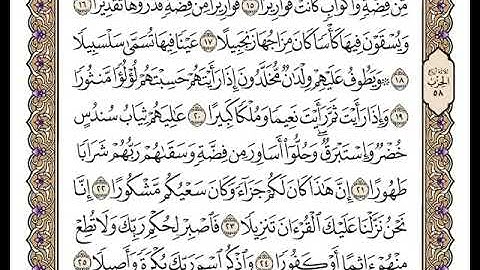 مِّن فِضَّةٍ وَأَكْوَابٍ كَانَتْ قَوَارِيرَا۠ ١٥ قَوَارِيرَا۟ مِن فِضَّةٍ قَدَّرُوهَا تَقْدِيرًا ١٦
وَيُسْقَوْنَ فِيهَا كَأْسًا كَانَ مِزَاجُهَا زَنجَبِيلًا ١٧ عَيْنًا فِيهَا تُسَمَّىٰ سَلْسَبِيلًا
١٨ ۞ وَيَطُوفُ عَلَيْهِمْ وِلْدَٰنٌ مُّخَلَّدُونَ إِذَا رَأَيْتَهُمْ حَسِبْتَهُمْ لُؤْلُؤًا مَّنثُورًا
١٩ وَإِذَا رَأَيْتَ ثَمَّ رَأَيْتَ نَعِيمًا وَمُلْكًا كَبِيرًا ٢٠ عَٰلِيَهُمْ ثِيَابُ سُندُسٍ
خُضْرٌ وَإِسْتَبْرَقٌ ۖ وَحُلُّوٓا۟ أَسَاوِرَ مِن فِضَّةٍ وَسَقَىٰهُمْ رَبُّهُمْ شَرَابًا
طَهُورًا ٢١ إِنَّ هَٰذَا كَانَ لَكُمْ جَزَآءً وَكَانَ سَعْيُكُم مَّشْكُورًا ٢٢ إِنَّا
نَحْنُ نَزَّلْنَا عَلَيْكَ ٱلْقُرْءَانَ تَنزِيلًا ٢٣ فَٱصْبِرْ لِحُكْمِ رَبِّكَ وَلَا تُطِعْ
مِنْهُمْ ءَاثِمًا أَوْ كَفُورًا ٢٤ وَٱذْكُرِ ٱسْمَ رَبِّكَ بُكْرَةً وَأَصِيلًا ٢٥
الحزب
٥٨